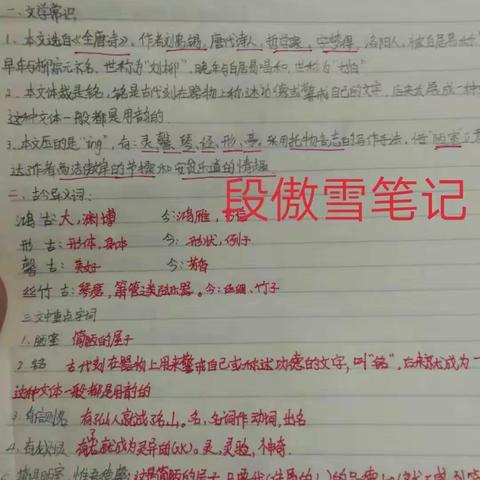 一、文学常识
1、本文选自《全唐诗》,作者刘禹锡,唐代诗人,哲学家,字梦得,洛阳人,被白居易称
早年与柳宗元齐名,世称为"刘柳",晚年与白居易唱和,世称为"刘白"
2、本文体裁是铭,铭是古代刻在器物上称述功德或警戒自己的文字,后来发展成一种
这种文体一般都是用韵的
3、本文压的是"ing",有:灵、馨、琴、经、形、亭。采用托物言志的写作手法,借"陋室
达作者高洁傲岸的节操和安贫乐道的情操
二、古今异义词:
鸿 古:大,渊博 今:鸿雁,书信
形 古:形体,身体 今:形状,例子
馨 古:美好 今:芳香
丝竹 古:琴瑟,箫管之类弦乐器。今:丝绸、竹子
段傲雪笔记
三文中重点字词
1.陋室 简陋的屋子
2.铭 古代刻在器物上用来警戒自己或称述功德的文字,叫"铭",后来就成为一
这种文体一般都是用韵的
3. 有仙则名 有仙人就成了名山。名,名词作动词,出名
4、有龙则灵 有龙就成为灵异的(水)。灵,灵验,神奇